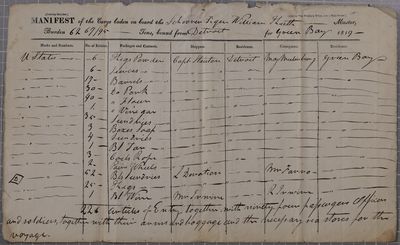 MANIFEST of the Cargo laden on board the Schooner Tiger William Master,
Burden 62 67/95 Tons, bound from Detroit for Green Bay 1819
Marks and Numbers. No. of Entries. Packages and Contents. Shippers. Residence. Consignees. Residence.
U States 6 Kegs Powder Capt Stanton Detroit Green Bay
6
19 Barrels
30 do Pork
90 " Flour
1 " Vinegar
35 Sundries
3 Boxes Soap
4 Sundries
1 Bl Tar
3 Coils Rope
2 Wheels
52 Bls Sundries
25 Kegs
1 Bl Mr Irwin R Irwin
226 Articles of Entry, together with ninety four passengers Officers
and soldiers, together with their arms and baggage and the necessary sea stores for the
voyage.